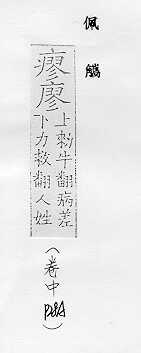 佩觿
瘳廖
上勑牛翻病差
下力救翻人姓
（卷中）